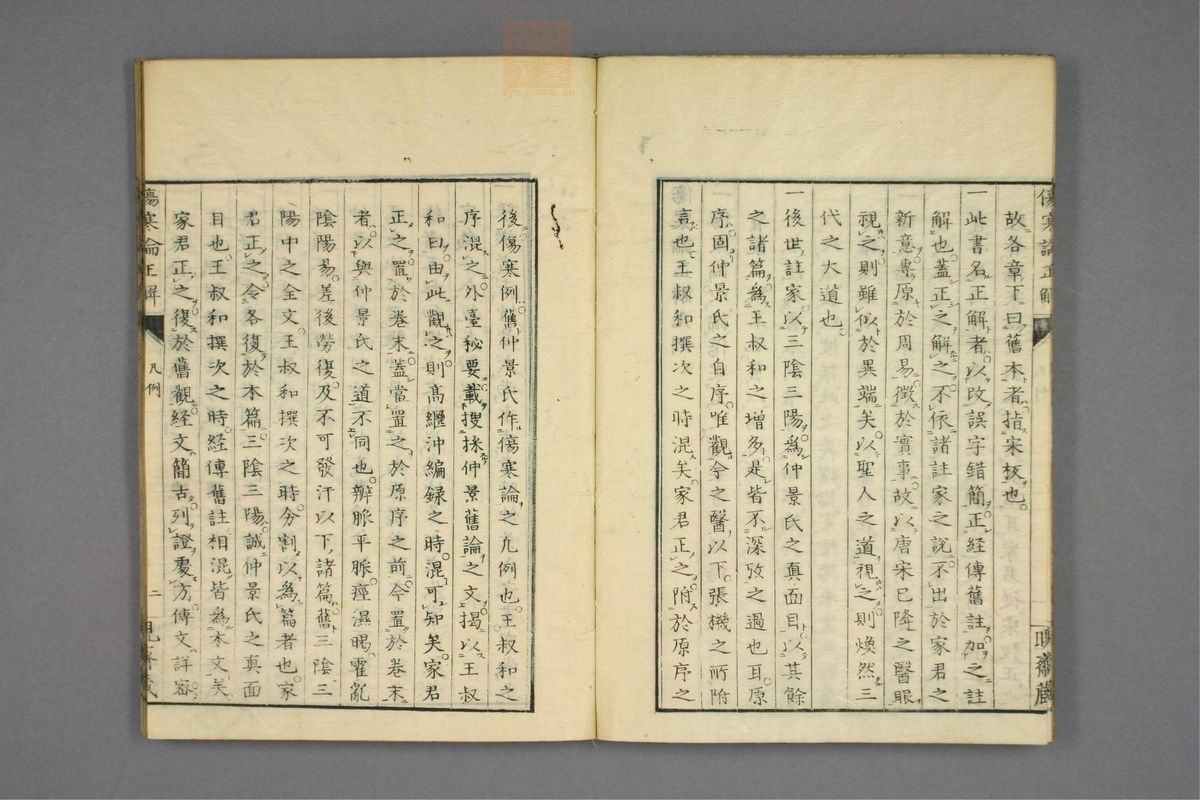 故各章下曰舊本者指宋板也
一此書名正解者以改誤字錯簡正經傳舊註加之註
解也蓋正之解之不依諸註家之說不出於家君之
新意專原於周易徵於實事故以唐宋已降之醫眼
視之則雖似於異端矣以聖人之道視之則煥然三
代之大道也
一後世註家以三陰三陽為仲景氏之真面目以其餘
之諸篇為王叔和之增多是皆不深攷之過也耳原
序固仲景氏之自序唯觀今之醫以下張機之所附
言也王叔和撰次之時混矣家君正之附於原序之
後傷寒例舊仲景氏作傷寒論之凡例也王叔和之
序混之外臺秘要載搜採仲景舊論之文揭以王叔
和曰由此觀之則高繼沖編録之時混可知矣家君
正之置於卷末蓋當置之於原序之前今置於卷末
者以與仲景氏之道不同也辨脈平脈痙濕暍霍亂
陰陽易差後勞復及不可發汗以下諸篇舊三陰三
陽中之全文王叔和撰次之時分割以為篇者也家
君正之令各復於本篇三陰三陽誠仲景氏之真面
目也王叔和撰次之時經傳舊註相混皆為本文矣
家君正之復於舊觀經文簡古列證處方傳文詳密
傷寒論正解
凡例
二